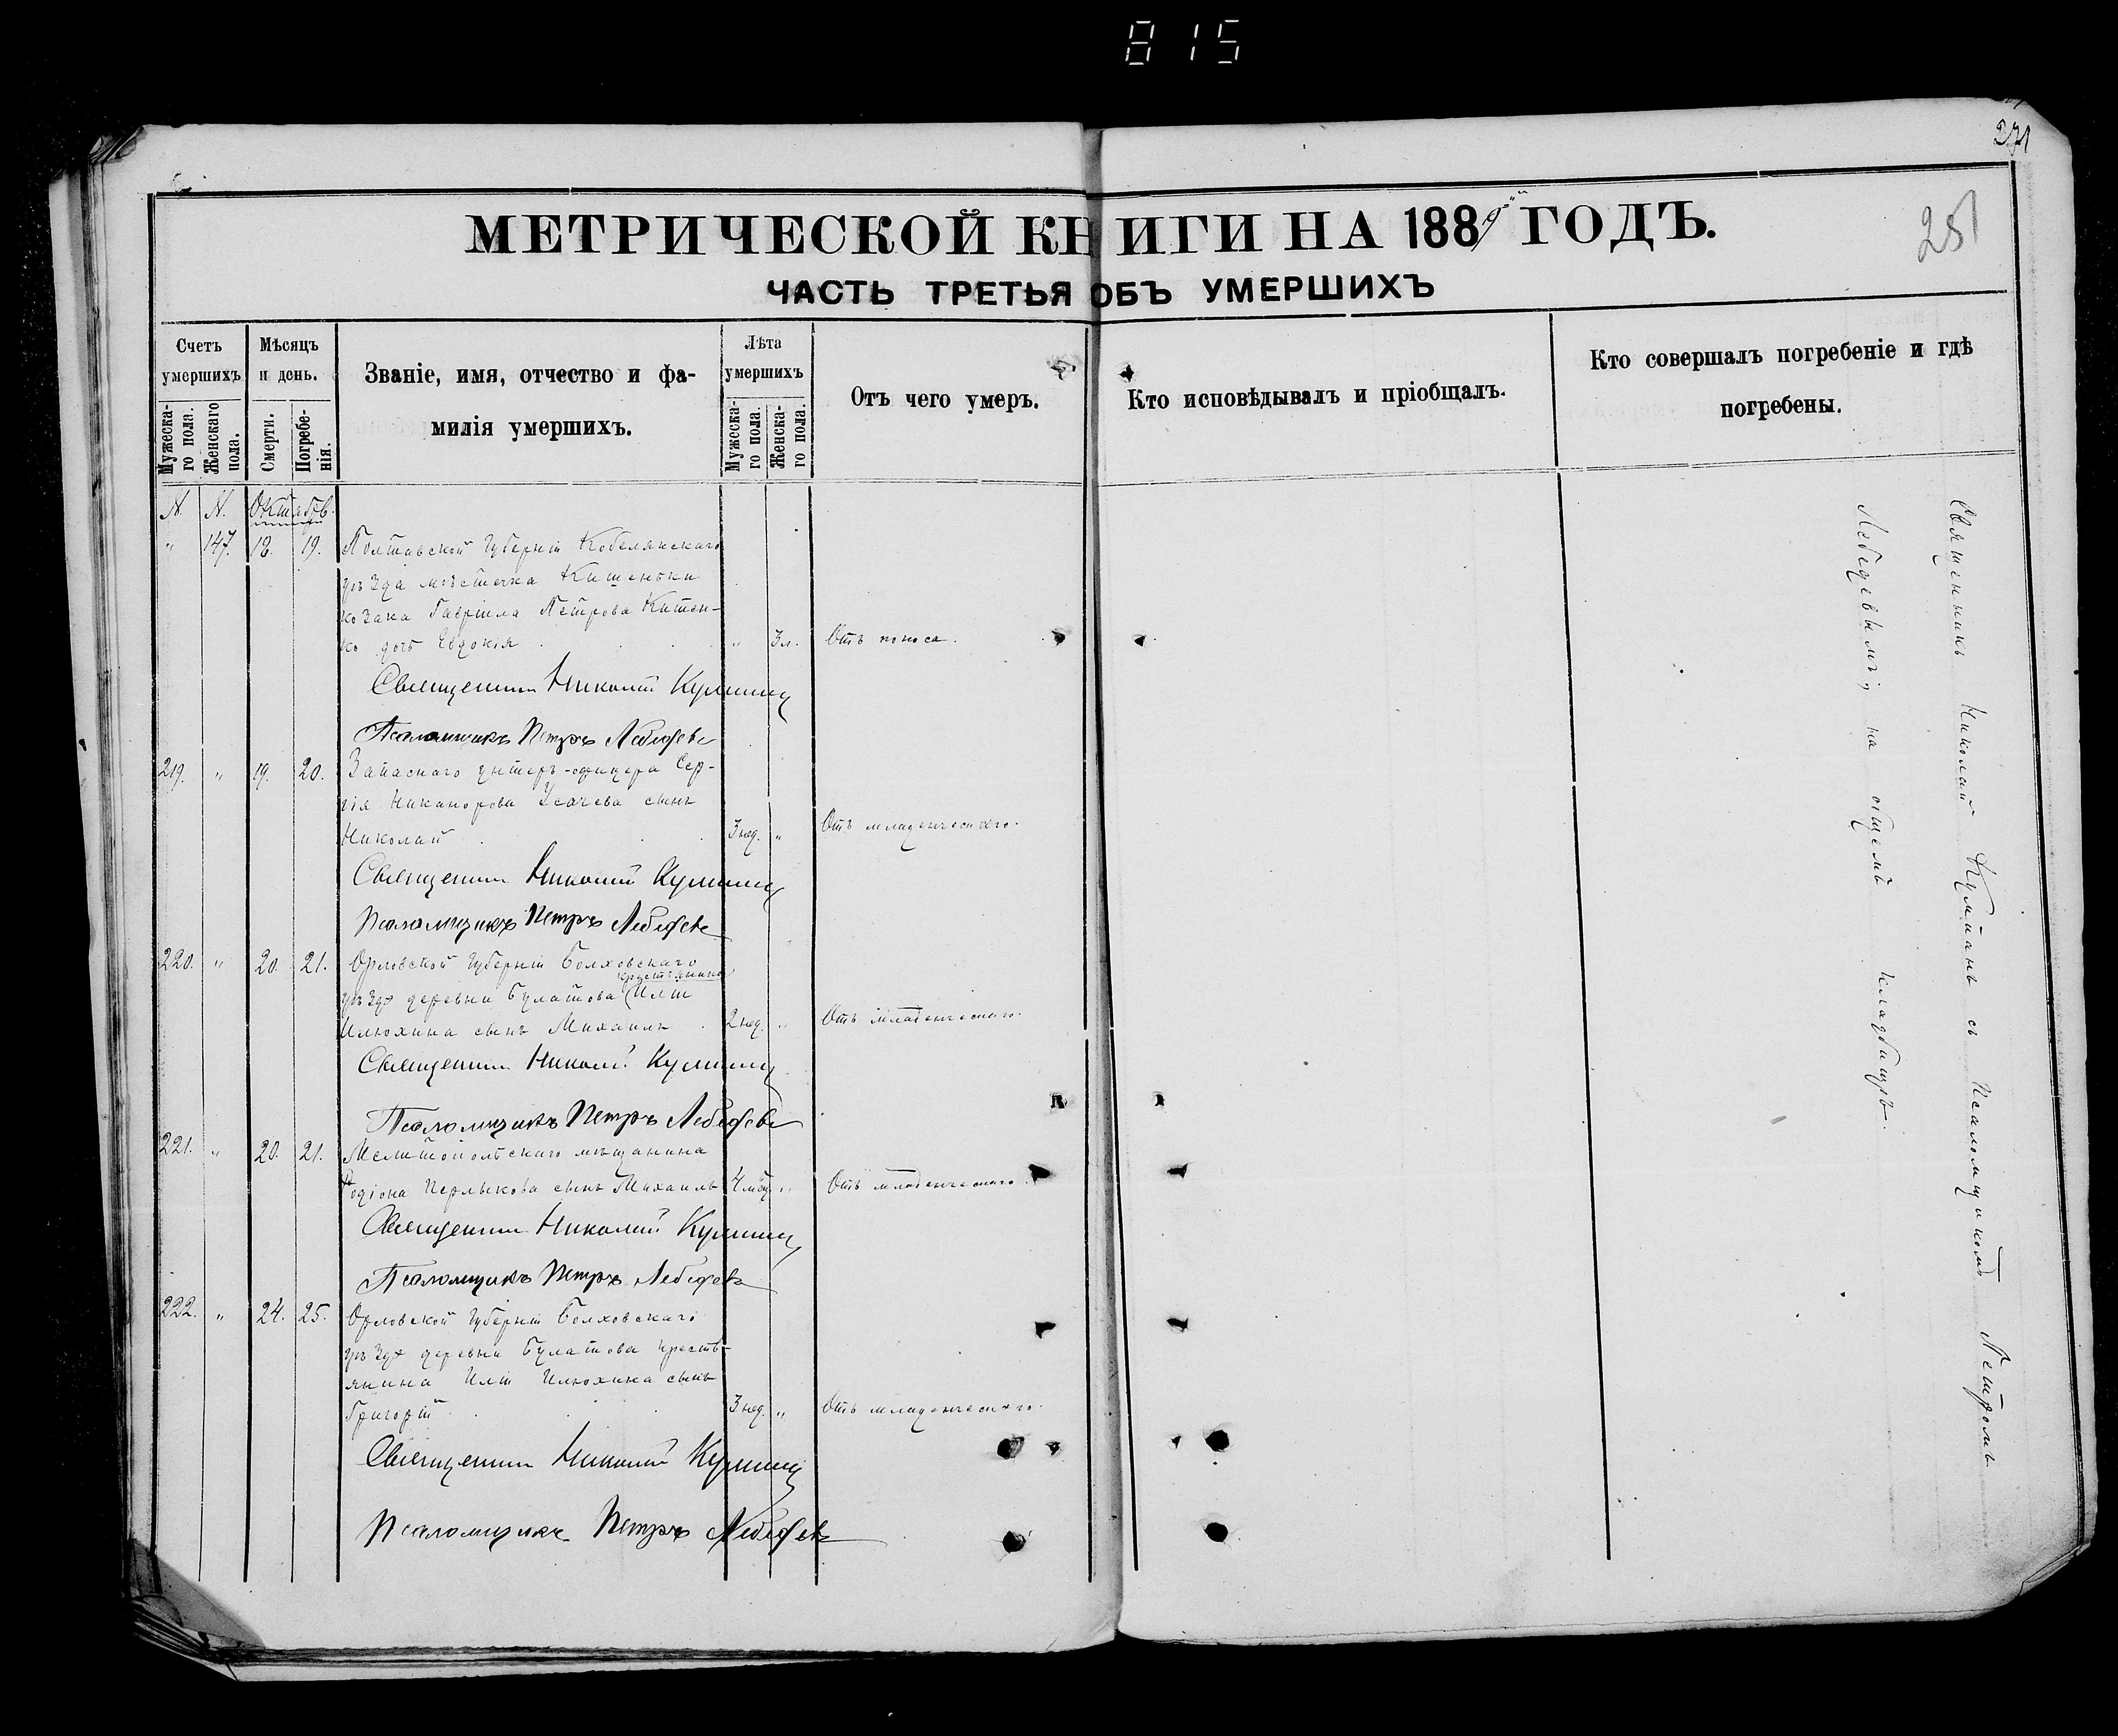 815
271
251
МЕТРИЧЕСКОЙ КНИГИ НА 1889й ГОДЪ.
ЧАСТЬ ТРЕТЬЯ ОБЪ УМЕРШИХЪ
Счетъ умершихъ
Мужеска-го пола.
Женскаго пола.
Мѣсяцъ и день.
Смерти.
Погребе-нія.
Званіе, имя, отчество и фа-
милія умершихъ.
Лѣта умершихъ
Мужеска-го пола.
Женска-го пола.
Отъ чего умеръ.
Кто исповѣдывалъ и пріобщалъ.
Кто совершалъ погребеніе и гдѣ
погребены.
N. N. Октябрь.
" 147. 18. 19. Полтавской Губерніи Кобелянскаго
уѣзда мѣстечка Кишеньки
козака Гавріила Петрова
ко дочь Евдокія " 3 л. Отъ поноса.
Священникъ Николай
Псаломщикъ Петръ Лебедевъ
219. " 19. 20. Запаснаго унтеръ-офицера Сер-
гія Никанорова Усачева сынъ
Николай 3 нед. " Отъ младенческаго.
Священникъ Николай
Псаломщикъ Петръ Лебедевъ
220. " 20. 21. Орловской Губерніи Болховскаго
крестьянина
уѣзда деревни Булатова Иліи
Илюхина сынъ Михаилъ 2 нед. " Отъ младенческаго.
Священникъ Николай
Псаломщикъ Петръ Лебедевъ
221. " 20. 21. Мелитопольскаго мѣщанина
Родіона сынъ Михаилъ 4 мѣс. " Отъ младенческаго.
Священникъ Николай
Псаломщикъ Петръ Лебедевъ
222. " 24. 25. Орловской Губерніи Болховскаго
уѣзда деревни Булатова кресть-
янина Иліи Илюхина сынъ
Григорій 3 нед. " Отъ младенческаго.
Священникъ Николай
Псаломщикъ Петръ Лебедевъ
Священникъ Николай съ Псаломщикомъ Петромъ
Лебедевымъ, на общемъ кладбищѣ.